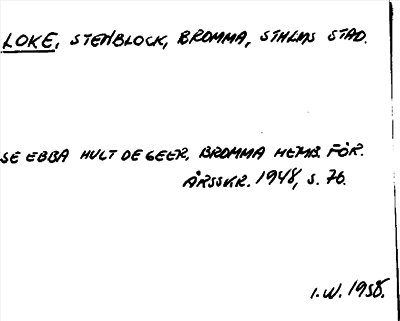 LOKE, STENBLOCK, BROMMA, STHLMS STAD.
SE EBBA HULT DE GEER, BROMMA HEMB. FÖR.
ÅRSSKR. 1948, S. 76.
I.W. 1958.